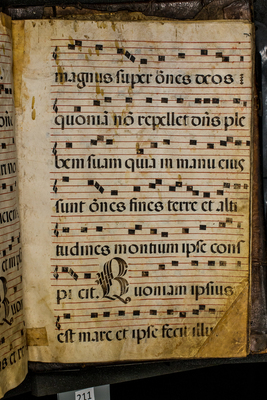 magnus super õnes deos :
quoniã nõ repellet dñs ple
bem suam quia in manu eius
sunt õnes fines terre et alti
tudines montium ipse cons
picit. Quoniam ipsius
est mare et ipse fecit illu
211